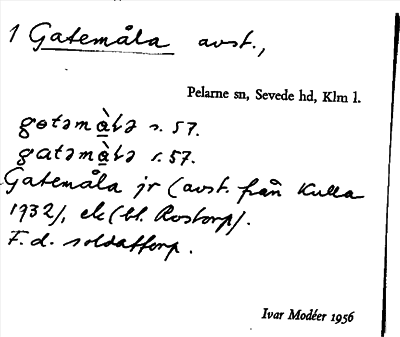 1 Gatemåla avst.,
Pelarne sn, Sevede hd, Klm l.
gɵtəmàLə s. 57.
gatəmàLə s. 57.
Gatemåla jr (avst. från Kulla
1932), ek (bl. Rostorp).
F. d. soldattorp.
Ivar Modéer 1956